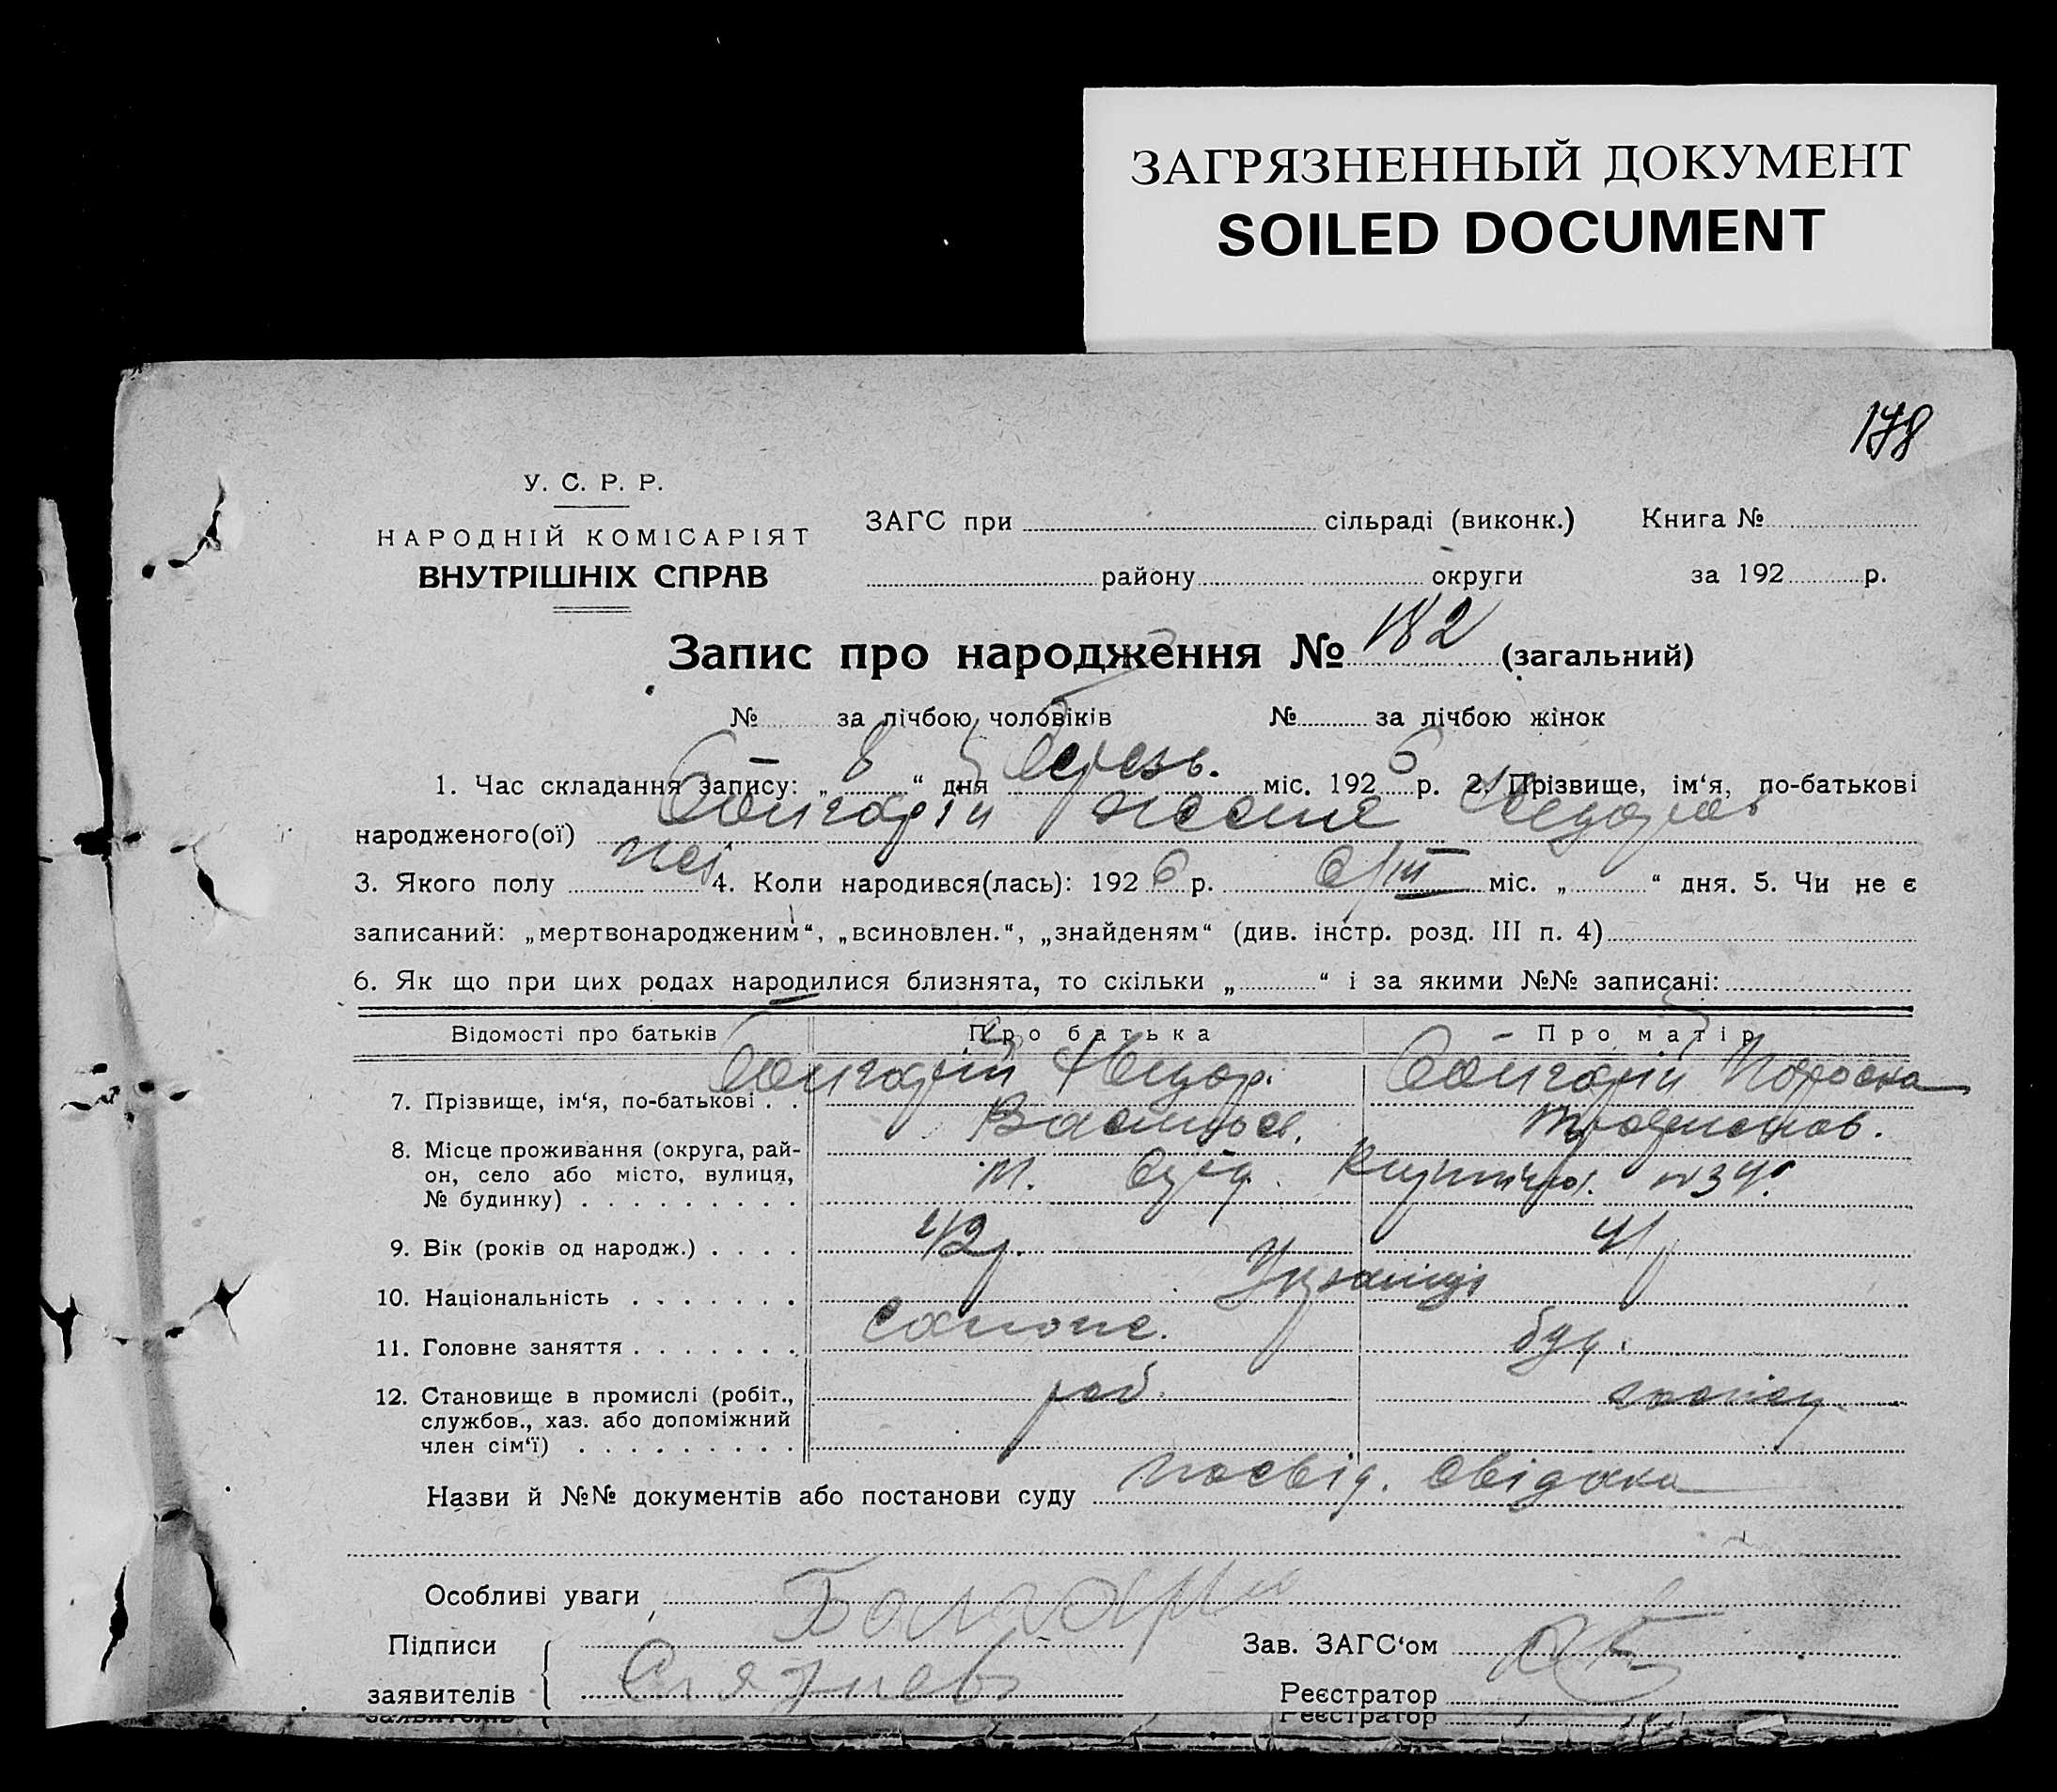 ЗАГРЯЗНЕННЫЙ ДОКУМЕНТ
SOILED DOCUMENT
178
У. С. Р. Р.
НАРОДНІЙ КОМІСАРІЯТ
ВНУТРІШНІХ СПРАВ
ЗАГС при сільраді (виконк.) Книга №
району округи за 192 р.
Запис про народження № 182 (загальний)
№ за лічбою чоловіків № за лічбою жінок
1. Час складання запису: „ 8 “ дня березь. міс. 192 6 р. 2. Прізвище, ім‘я, по-батькові
народженого(ої)
3. Якого полу жі 4. Коли народився(лась): 192 6 р. 6/III міс. „ “ дня. 5. Чи не є
записаний: „мертвонародженим“, „всиновлен.“, „знайденям“ (див. інстр. розд. III п. 4)
6. Як що при цих родах народилися близнята, то скільки „ “ і за якими №№ записані:
Відомості про батьків Про батька Про матір
7. Прізвище, ім‘я, по-батькові . .
8. Місце проживання (округа, рай-
он, село або місто, вулиця,
№ будинку) . . . . . . . . . М. №34.
9. Вік (років од народж.) . . . . 42р. 41р
10. Національність . . . . . . . Українці
11. Головне заняття . . . . . . .
12. Становище в промислі (робіт.,
службов., хаз. або допоміжний роб.
член сім‘ї) . . . . . . . . .
Назви й №№ документів або постанови суду посвід. свідока
Особливі уваги
Підписи Зав. ЗАГС‘ом
заявителів Реєстратор
заявителів Реєстратор